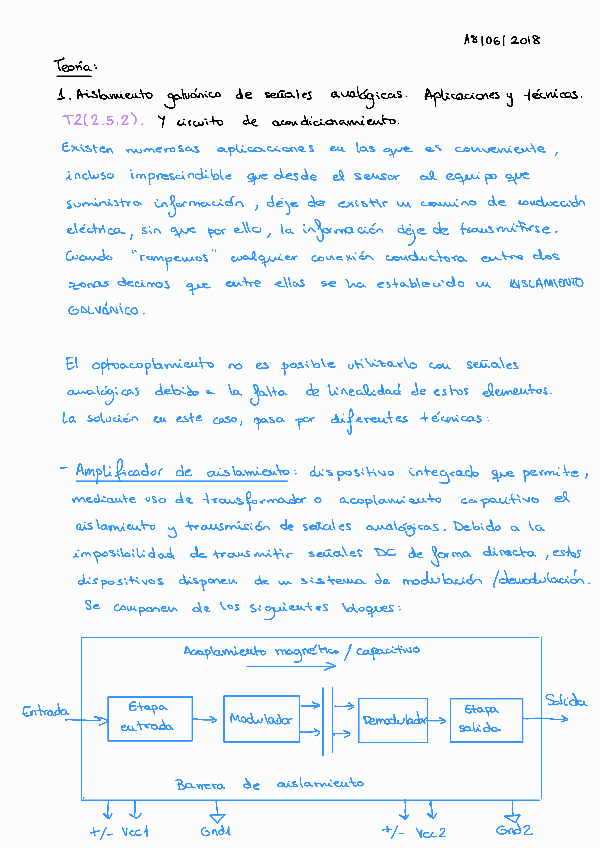 18/06/2018
Teoría:
1. Aislamiento galvánico de señales analógicas. Aplicaciones y técnicas.
T2(2.5.2). Y circuito de acondicionamiento.
Existen numerosas aplicaciones en las que es conveniente,
incluso imprescindible que desde el sensor al equipo que
suministra información, deje de existir un camino de conducción
eléctrica, sin que por ello, la información deje de transmitirse.
Cuando "rompemos" cualquier conexión conductora entre dos
zonas decimos que entre ellas se ha establecido un AISLAMIENTO
GALVÁNICO.
El optoacoplamiento no es posible utilizarlo con señales
analógicas debido a la falta de linealidad de estos elementos.
La solución en este caso, pasa por diferentes técnicas:
- Amplificador de aislamiento: dispositivo integrado que permite,
mediante uso de transformador o acoplamiento capacitivo el
aislamiento y transmisión de señales analógicas. Debido a la
imposibilidad de transmitir señales DC de forma directa, estos
dispositivos disponen de un sistema de modulación/demodulación.
Se componen de los siguientes bloques:
Acoplamiento magnético/capacitivo
Entrada
Etapa
entrada
Modulador
Demodulador
Etapa
salida
Salida
Barrera de aislamiento
+/- Vcc1
Gnd1
+/- Vcc2
Gnd2